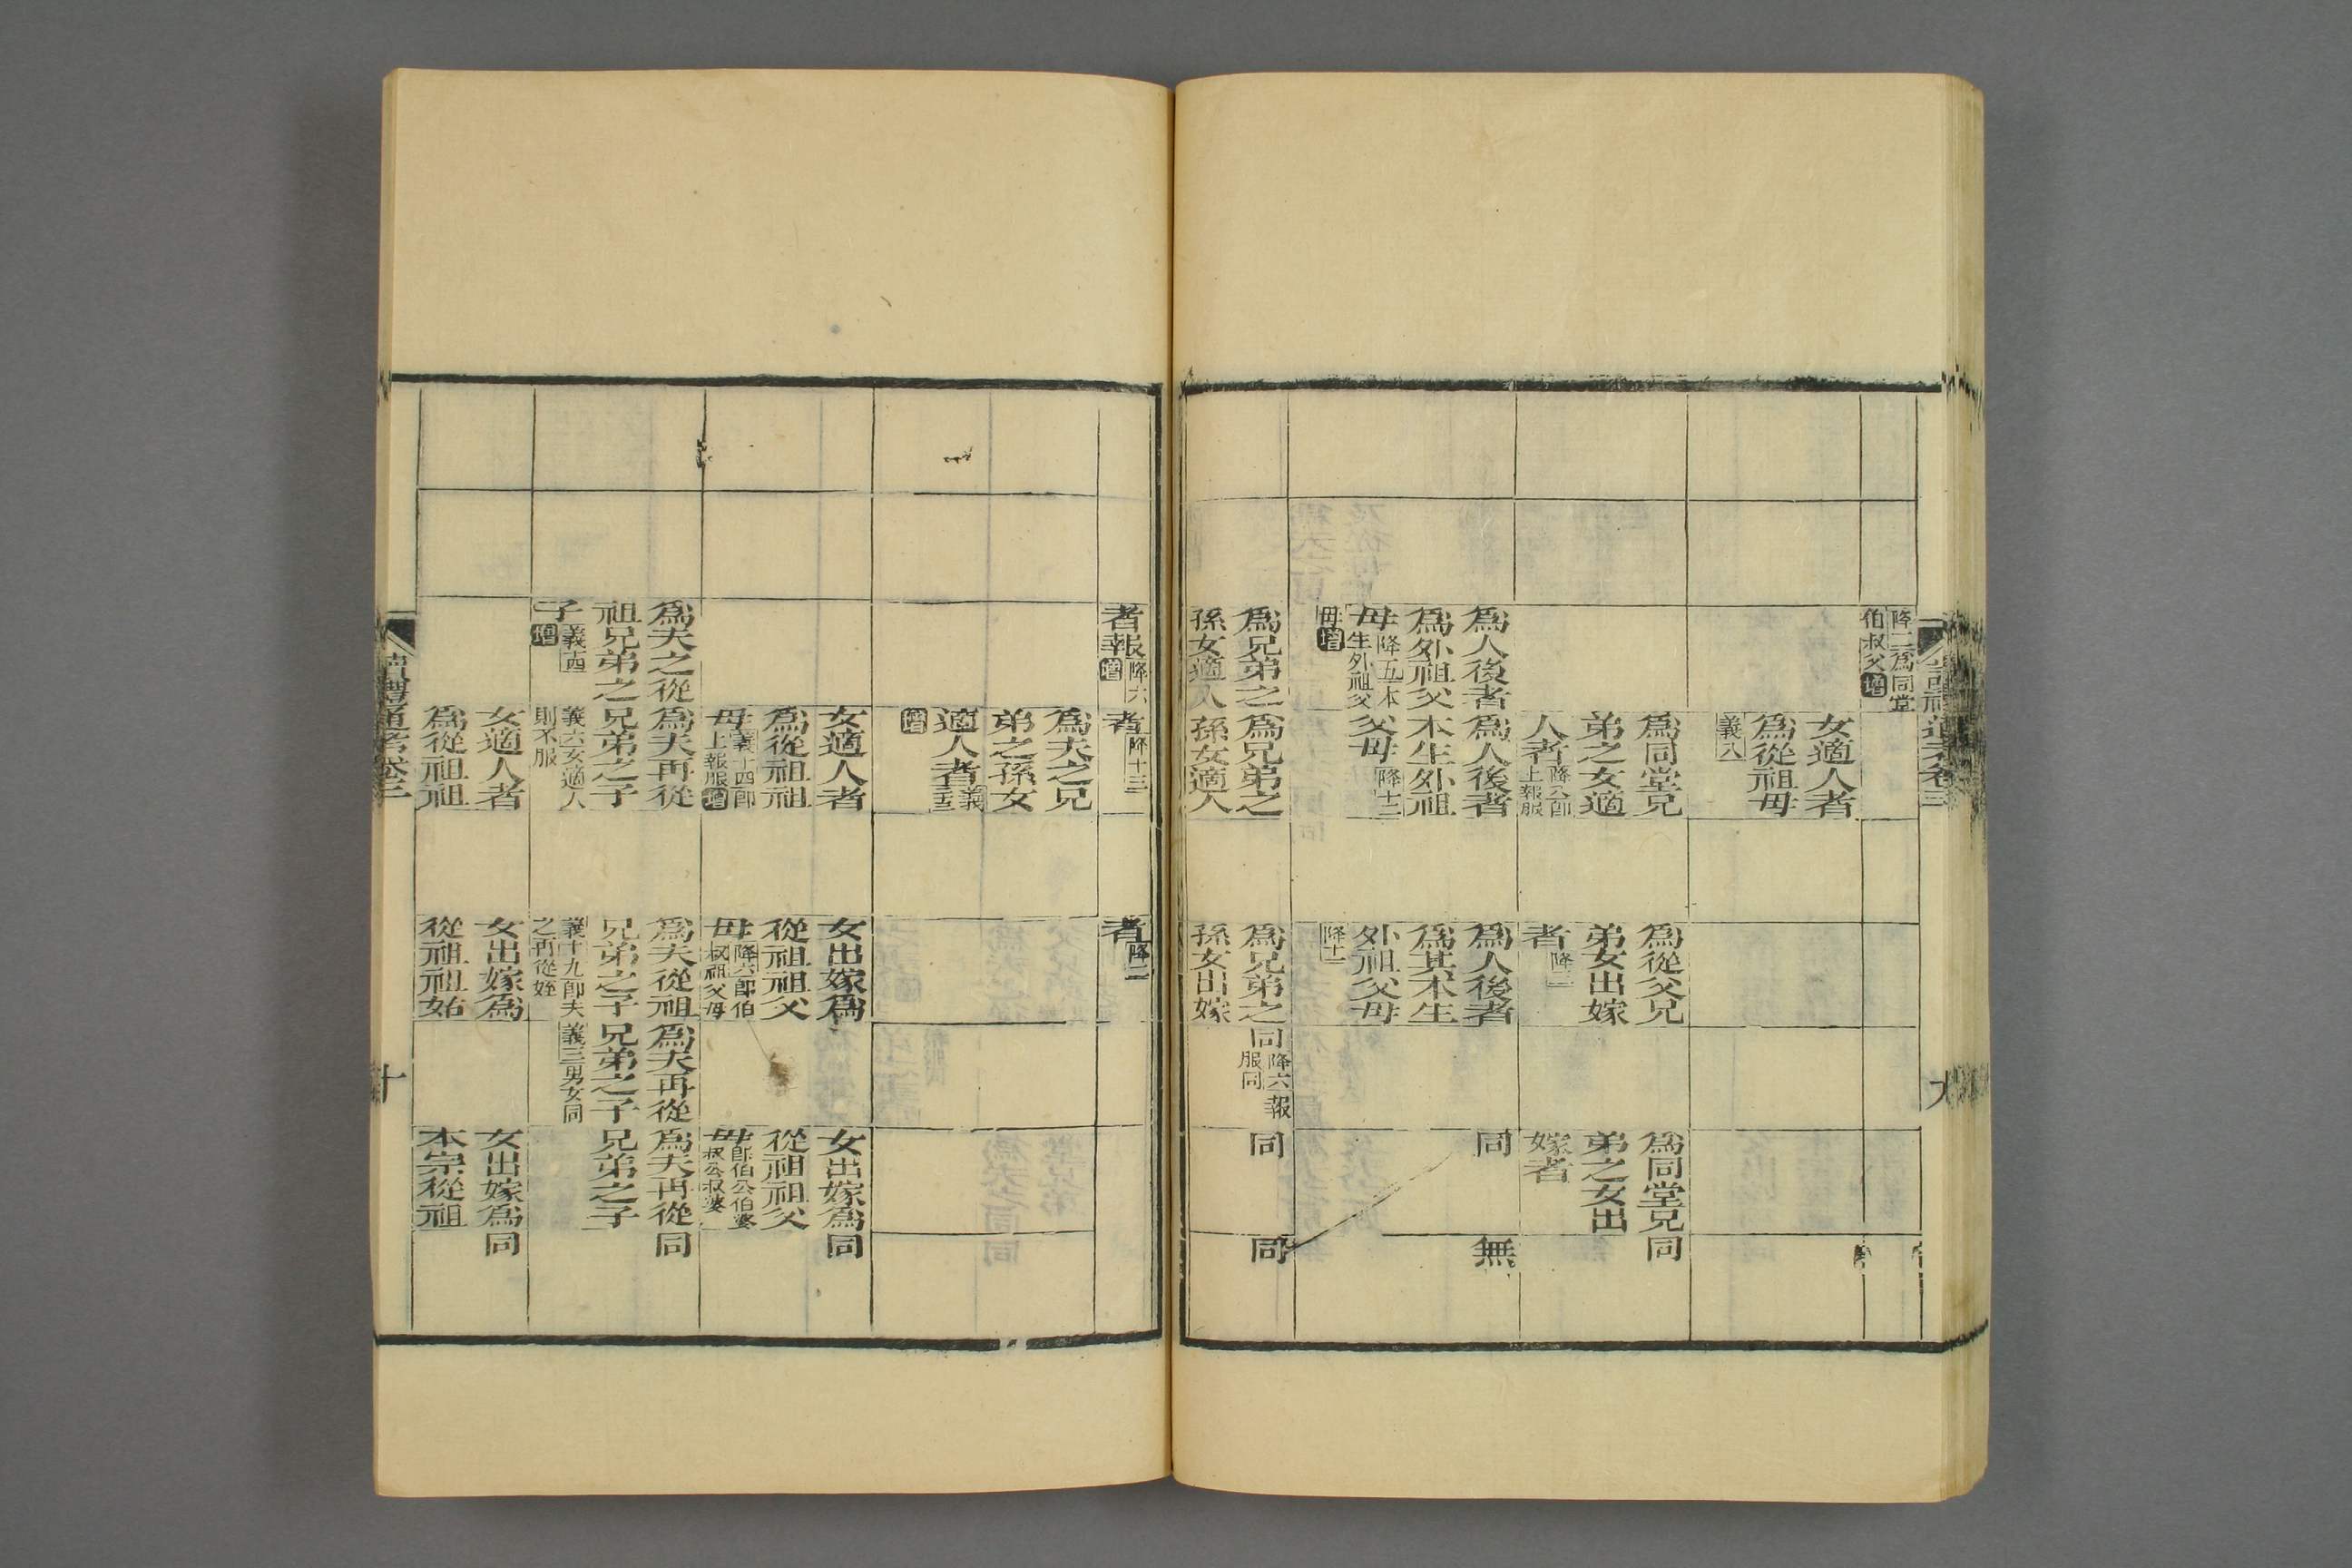 降二爲同堂
伯叔父增
女適人者
爲從祖母
義八
爲同堂兄
弟之女適
人者
降八卽
上報服
爲從父兄
弟女出嫁
者降三
爲同堂兄
弟之女出
嫁者
同
爲人後者
爲外祖父
母
降五本
生外祖父
母增
爲人後者
本生外祖
父母降十二
爲人後者
爲其本生
外祖父母
降十一
同
無
爲兄弟之
孫女適人
爲兄弟之
孫女適人
爲兄弟之
孫女出嫁
同
降六報
服同
同
同
者報降六
增
者降十三
者降二
爲夫之兄
弟之孫女
適人者義
增
女適人者
爲從祖祖
母
義十四卽
上報服增
女出嫁爲
從祖祖父
母
降六卽伯
叔祖父母
女出嫁爲
從祖祖父
母
卽伯公伯婆
叔公叔婆
同
爲夫之從
祖兄弟之
子義西
增
爲夫再從
兄弟之子
義六女適人
則不服
爲夫從祖
兄弟之子
義十九卽夫
之再從姪
爲夫再從
兄弟之子
義三男女同
爲夫再從
兄弟之子
同
女適人者
爲從祖祖
女出嫁爲
從祖祖姑
女出嫁爲
本宗從祖
同
讀禮通考卷三
十